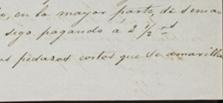 en la mayor parte de
siga pagando á 2 1/2 rd
pedazos cortos que se